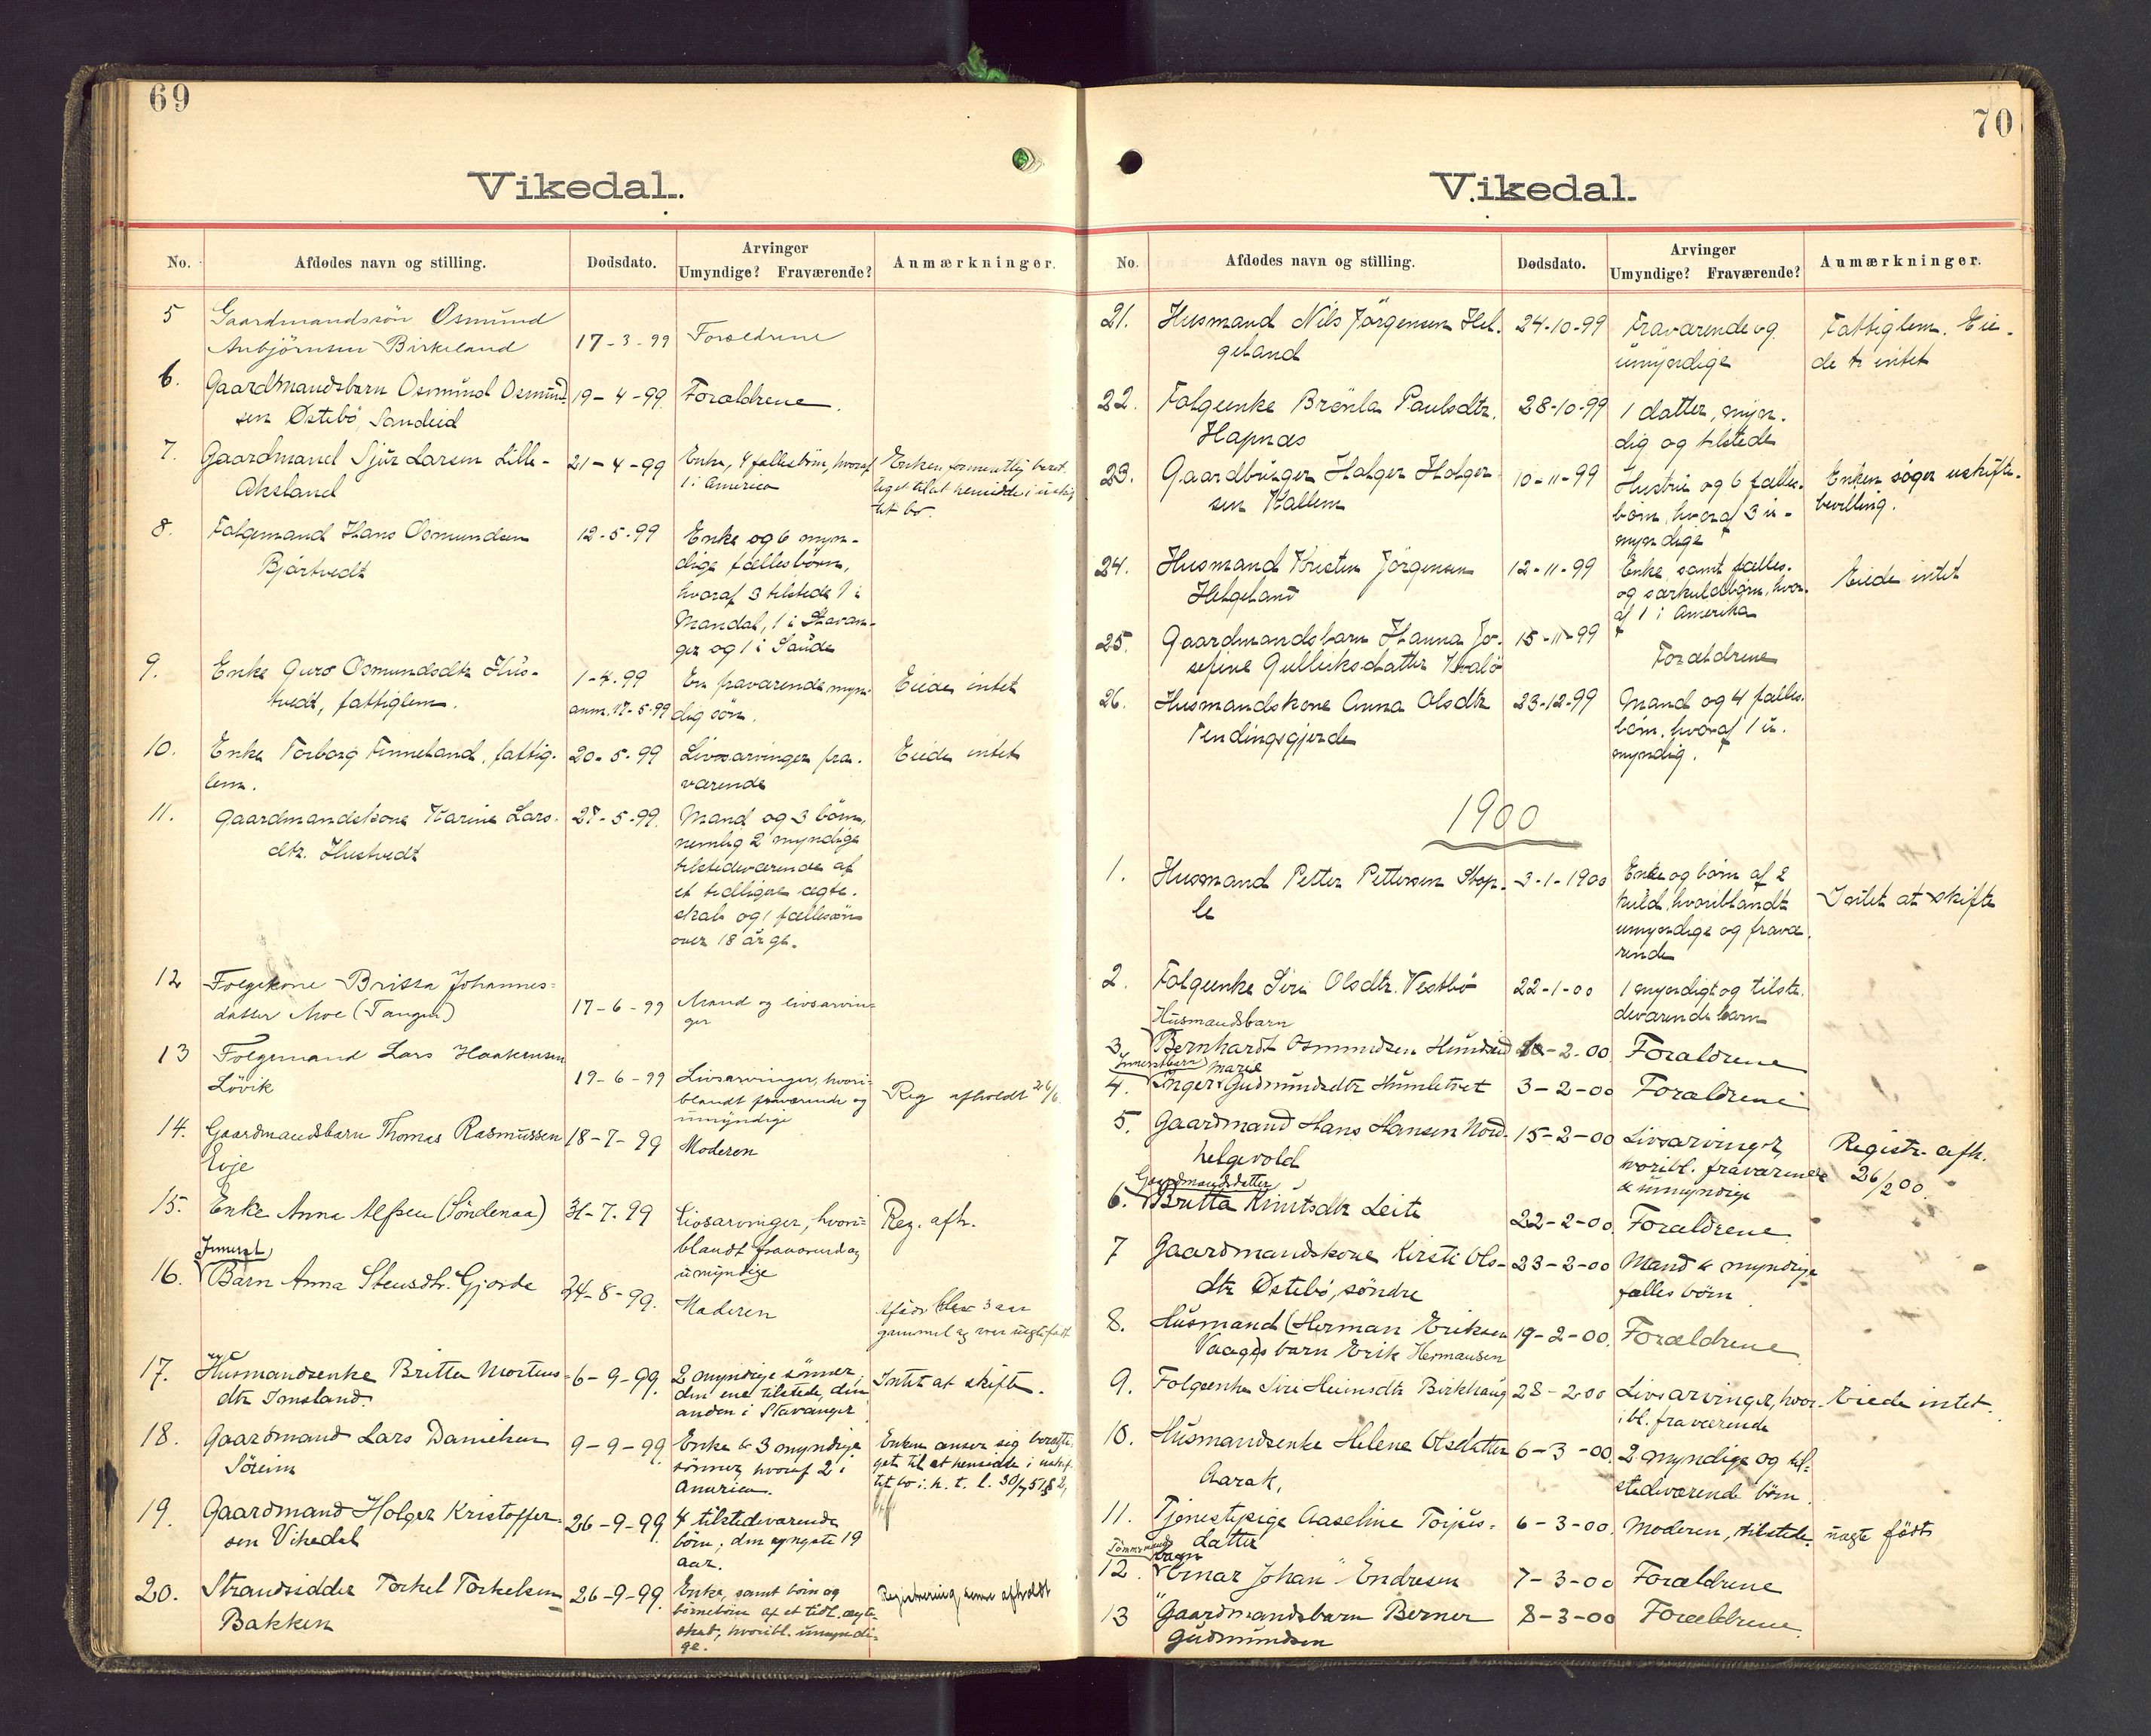 69
Vikedal.
No. Afdødes navn og stilling. Dødsdato. Arvinger Umyndige? Fraværende? Anmærkninger.
5 Gaardmandssön Osmund
Anbjörnsen Birkeland 17-3-99 Forældrene
6. Gaardmandsbarn Osmund Osmund 19-4-99 Forældrene.
sen Østebö, Sandeid
7. Gaardmand Sjur Larsen Lille- 21-4-99 Enke, 4 fællesbörn, hvoraf Enken formentlig beret.
Aksland 1 i America tiget til at hensidde i uskif
tet bo.
8. Folgemand Hans Osmundsen 12-5-99 Enke og 6 myn-
Bjärtvedt dige fællesbörn,
hvoraf 3 tilstede 1 i
Mandal, 1 i Stavan-
ger og 1 i Saude
9. Enke Guro Osmundsdtr Hus- 1-4-99 En fraværende myn- Eiede intet
tvedt, fattiglem. anm. 17-5-99 dig sön.
10. Enke Torborg Finneland, fattig- 20-5-99 Livsarvinger fra- Eiede intet
lem. værende
11. Gaardmandskone Karine Lars- 27-5-99. Mand og 3 börn,
dtr. Hustvedt nemlig 2 myndige
tilstedeværende af
et tidligere ægte-
skab og 1 fællessön
over 18 år gl.
12 Folgekone Britta Johannes-
datter Moe (Tangen) 17-6-99 Mand og livsarvin-
ger
13 Folgemand Lars Haakensen
Lövik 19-6-99 Livsarvinger, hvori-
blandt fraværende og Reg afholdt 26/6
umyndige
14. Gaardmandsbarn Thomas Rasmussen 18-7-99 Moderen
Evje
15. Enke Anna Alfsen (Söndenaa) 31-7-99 Livsarvinger, hvori- Reg. afh.
blandt fraværend og
umyndige
Innerst
16. Barn Anna Stensdtr. Gjerde 24-8-99. Moderen
blev 3 aar
gammel og var uægtefödt
17. Husmandsenke Britta Mortens- 6-9-99. 2 myndige sönner, Intet at skifte.
dtr Imsland. den ene tilstede, den
anden i Stavanger
18. Gaardmand Lars Danielsen 9-9-99. Enke & 3 myndige Enken anser sig beretti-
Söreim sönner, hvoraf 2 i get til at hensidde i uskif
America. tet bo i. h. t. l. 30/7 51 § 2,
19. Gaardmand Holger Kristoffer- 26-9-99. 4 tilstedværende
sen Vikedal börn; den yngste 19
aar.
20. Strandsidder Torkel Torkelsen 26-9-99. Enke, samt börn og Registrering afholdt
Bakken börnebörn af et tidl. ægte-
skab, hvoribl. umyndi-
ge.
70
Vikedal.
No. Afdødes navn og stilling. Dødsdato. Arvinger Umyndige? Fraværende? Anmærkninger.
21. Husmand Nils Jörgensen Hel- 24-10-99 Fraværende og Fattiglem. Eie-
geland umyndige de intet
22. Folgeenke Brönla Paulsdtr. 28-10-99 1 datter, myn-
Hapnæs dig og tilstede
23. Gaardbruger Holger Holger- 10-11-99 Hustru og 6 fælles- Enken söger uskifte-
sen Kallem börn, hvoraf 3 u- bevilling.
myndige
24. Husmand Kristen Jörgensen 12-11-99 Enke samt fælles- Eiede intet
Helgeland og særkuldbörn, hvor-
af 1 i Amerika
25. Gaardmandsbarn Hanna Jo- 15-11-99 Forældrene
sefine Gulliksdatter Kvalö
26. Husmandskone Anna Olsdtr 23-12-99 Mand og 4 fælles-
Tendingsgjerde börn, hvoraf 1 u-
myndig.
1900
1. Husmand Petter Pettersen Stop- 3-1-1900 Enke og börn af 2
le kuld, hvoriblandt Intet at skifte
umyndige og fravæ-
rende
2. Folgeenke Siri Olsdtr. Vestbö 22-1-00 1 myndigt og tilste-
deværende barn
Husmandsbarn
3. Bernhardt Osmundsen -2-00 Forældrene
Innerstbarn Marie
4. Inger Gudmundsdtr Humletvet 3-2-00 Forældrene
5. Gaardmand Hans Hansen Nord- 15-2-00 Livsarvinger, Registr. afh.
helgevold hvoribl. fraværende 26/2 00.
& umyndige
Gaardmandsdatter
6. Britta Knutsdtr Leite 22-2-00. Forældrene
7 Gaardmandskone Kirsti Ols- 23-2-00 Mand & myndige
dtr Østebö, söndre fælles börn
8. Husmand (Herman Eriksen 19-2-00. Forældrene
Vaage)s barn Erik Hermansen
9. Folgeenke Siri Heinsdtr Birkhaug 28-2-00 Livsarvinger, hvor- Eiede intet.
ibl. fraværende
10. Husmandsenke Helene Olsdatter 6-3-00. 2 myndige og til-
Aarak, stedværende börn.
11. Tjenestepige Aaseline Torjus- 6-3-00. Moderen, tilstede. uægte födt
datter
Tömmermands
barn
12. Einar Johan Endresen 7-3-00 Forældrene
13 Gaardmandsbarn Berner 8-3-00 Forældrene.
Gudmundsen